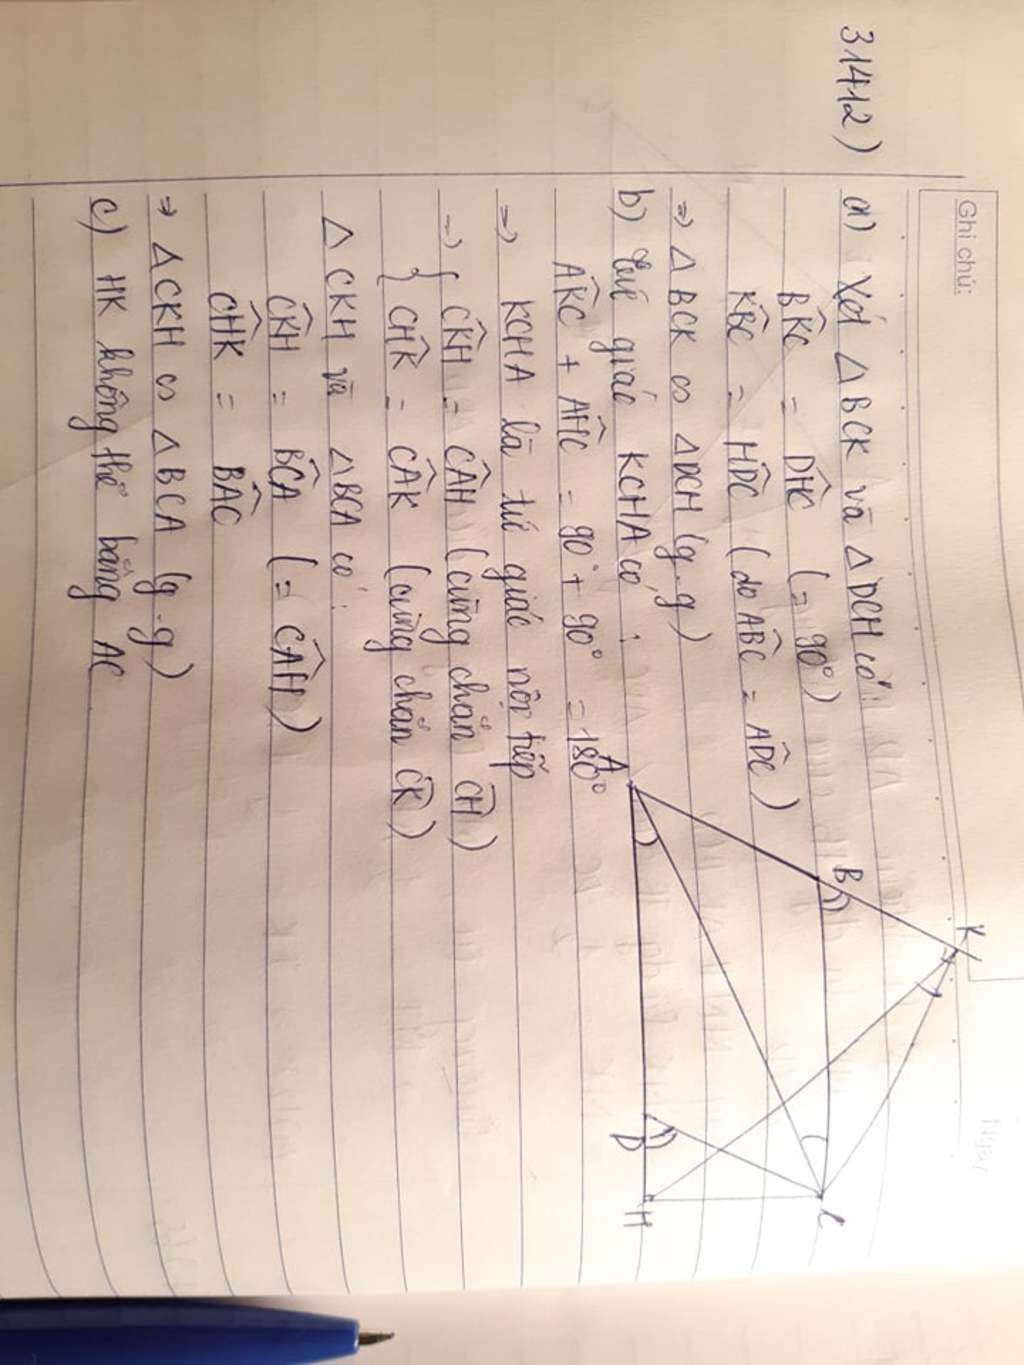 Ghi chú:
Ngày
31412)
a) Xét △BCK và △DCH có:
BK̂C = DĤC (= 90°)
KB̂C = HD̂C (do AB̂C = AD̂C)
⇒ △BCK ∽ △DCH (g.g)
b) tứ giác KCHA có:
AK̂C + AĤC = 90° + 90° = 180°
⇒ KCHA là tứ giác nội tiếp
⇒ { CK̂H = CÂH (cùng chắn C͡H)
{ CĤK = CÂK (cùng chắn C͡K)
△CKH và △BCA có:
CK̂H = BĈA (= CÂH)
CĤK = BÂC
⇒ △CKH ∽ △BCA (g.g)
c) HK không thể bằng AC
K
B
A
C
D
H